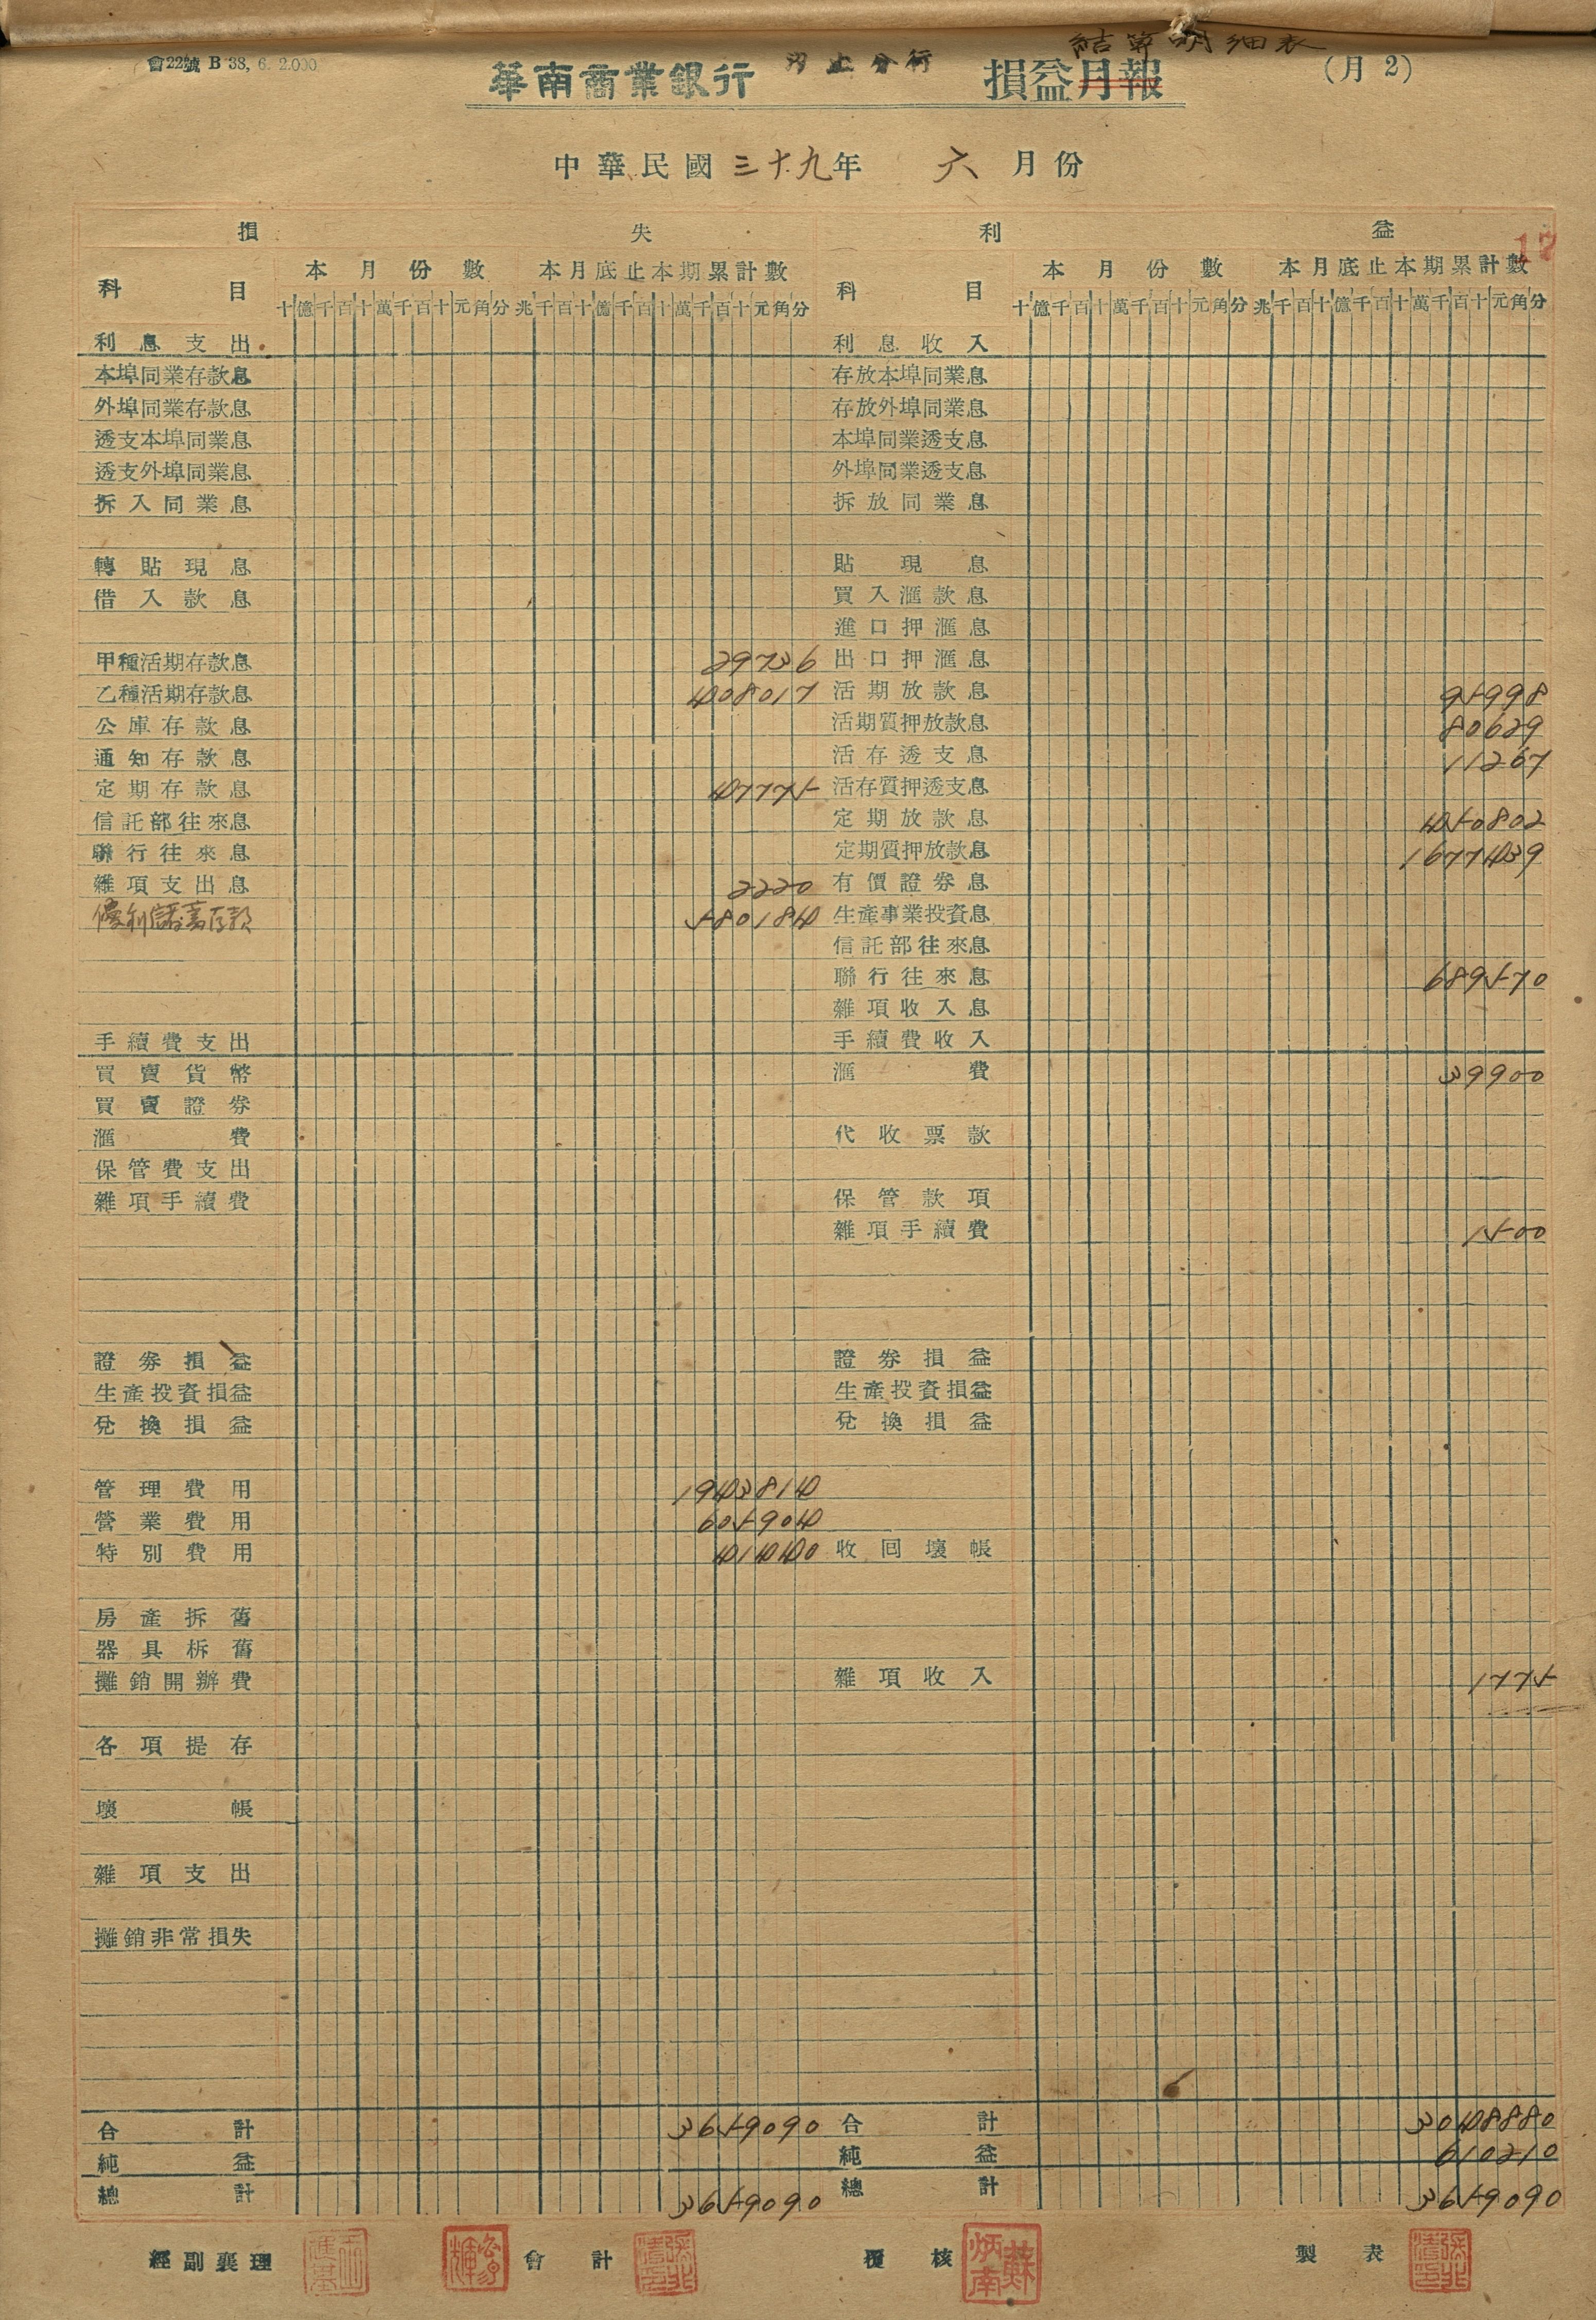 會22號 B 38, 6. 2.000
華南商業銀行 汐止分行 損益月報 結算明細表 (月 2)
中華民國三十九年 六月份
17
損 失 利 益
科 目 本月份數 本月底止本期累計數 科 目 本月份數 本月底止本期累計數
十億千百十萬千百十元角分 兆千百十億千百十萬千百十元角分 十億千百十萬千百十元角分 兆千百十億千百十萬千百十元角分
利息支出 利息收入
本埠同業存款息 存放本埠同業息
外埠同業存款息 存放外埠同業息
透支本埠同業息 本埠同業透支息
透支外埠同業息 外埠同業透支息
拆入同業息 拆放同業息
轉貼現息 貼現息
借入款息 買入滙款息
進口押滙息
甲種活期存款息 29736 出口押滙息
乙種活期存款息 408017 活期放款息 95998
公庫存款息 活期質押放款息 80629
通知存款息 活存透支息 11267
定期存款息 47775 活存質押透支息
信託部往來息 定期放款息 450802
聯行往來息 定期質押放款息 1677439
雜項支出息 2220 有價證券息
優利儲蓄存款 580184 生產事業投資息
信託部往來息
聯行往來息 689570
雜項收入息
手續費支出 手續費收入
買賣貨幣 滙費 39900
買賣證券
滙費 代收票款
保管費支出
雜項手續費 保管款項
雜項手續費 1500
證券損益 證券損益
生產投資損益 生產投資損益
兌換損益 兌換損益
管理費用 1943814
營業費用 605904
特別費用 41440 收回壞帳
房產拆舊
器具柝舊
攤銷開辦費 雜項收入 1775
各項提存
壞帳
雜項支出
攤銷非常損失
合計 3659090 合計 3048880
純益 純益 610210
總計 3659090 總計 3659090
經副襄理 會計 覆核 蘇炳南 製表